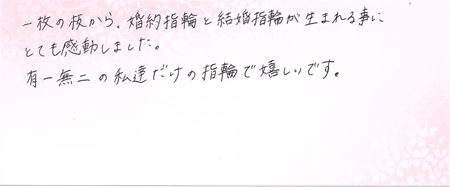 一枚の板から、婚約指輪と結婚指輪が生まれる事に
とても感動しました。
有一無二の私達だけの指輪で嬉しいです。